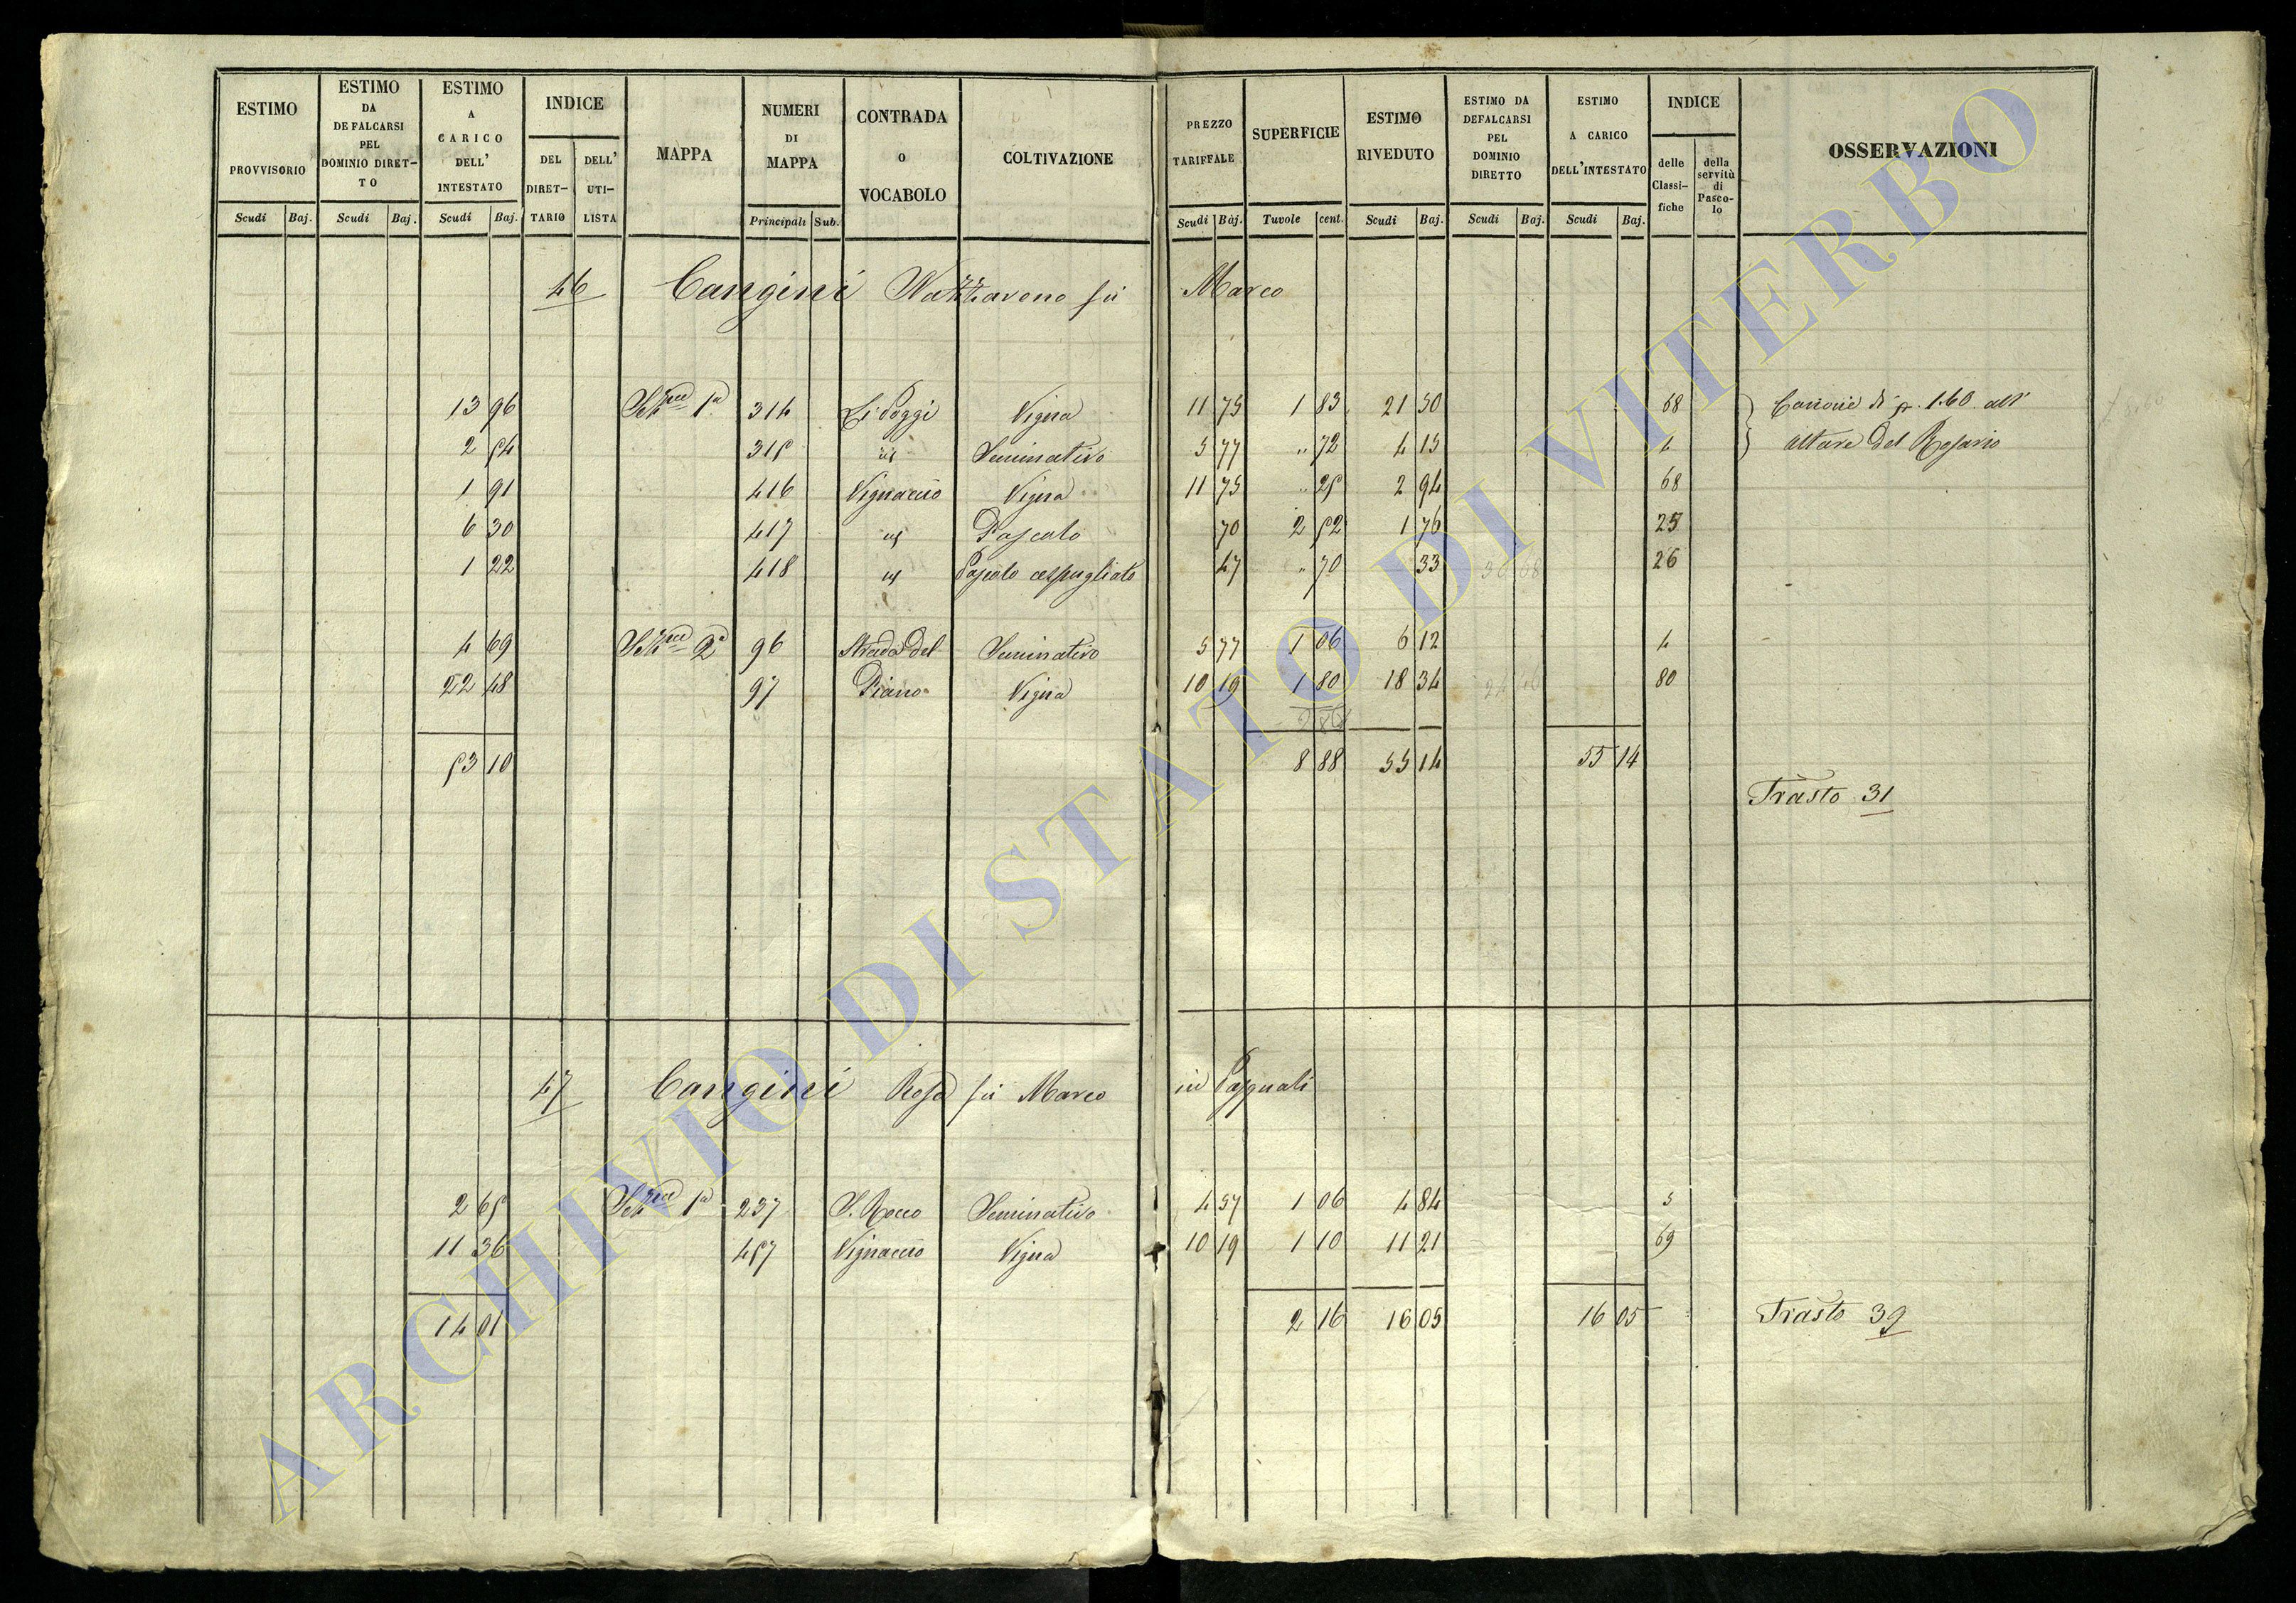 ESTIMO PROVVISORIO | ESTIMO DA DEFALCARSI PEL DOMINIO DIRET-TO | ESTIMO A CARICO DELL' INTESTATO | INDICE DEL DIRET-TARIO | DELL' UTI-LISTA | MAPPA | NUMERI DI MAPPA | CONTRADA O VOCABOLO | COLTIVAZIONE | PREZZO TARIFFALE | SUPERFICIE | ESTIMO RIVEDUTO | ESTIMO DA DEFALCARSI PEL DOMINIO DIRETTO | ESTIMO A CARICO DELL'INTESTATO | INDICE delle Classi-fiche | della servitù di Pasco-lo | OSSERVAZIONI
Scudi Baj. | Scudi Baj. | Scudi Baj. | Principali Sub. | Scudi Baj. | Tavole cent. | Scudi Baj. | Scudi Baj. | Scudi Baj.
46 Cangini Nazzareno fu Marco
13 96 | Sezne 1a | 314 | Li Poggi | Vigna | 11 75 | 1 83 | 21 50 | 68 | Canone di 1.60 all'
2 54 | 315 | id | Seminativo | 5 77 | " 72 | 4 15 | 4 | altare del Rosario
1 91 | 416 | Vignaccio | Vigna | 11 75 | " 25 | 2 94 | 68
6 30 | 417 | id | Pascolo | 70 | 2 52 | 1 76 | 25
1 22 | 418 | id | Pascolo cespugliato | 47 | " 70 | 33 | 30 68 | 26
4 69 | Sezne 2a | 96 | Strada del | Seminativo | 5 77 | 1 06 | 6 12 | 4
22 48 | 97 | Piano | Vigna | 10 19 | 1 80 | 18 34 | 24 46 | 80
53 10 | 8 88 | 55 14 | 55 14
Trasto 31
47 Cangini Rosa fu Marco in Pasquali
2 65 | Sezne 1a | 237 | S. Rocco | Seminativo | 4 57 | 1 06 | 4 84 | 5
11 36 | 457 | Vignaccio | Vigna | 10 19 | 1 10 | 11 21 | 69
14 01 | 2 16 | 16 05 | 16 05 | Trasto 39
ARCHIVIO DI STATO DI VITERBO